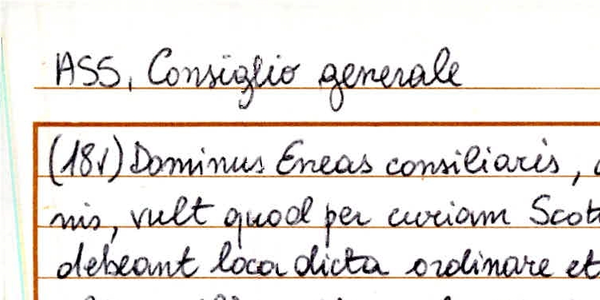 ASS, Consiglio generale
(18v) Dominus Eneas consiliaris,
nis, vult quod per curiam Scot
debeant loca dicta ordinare et